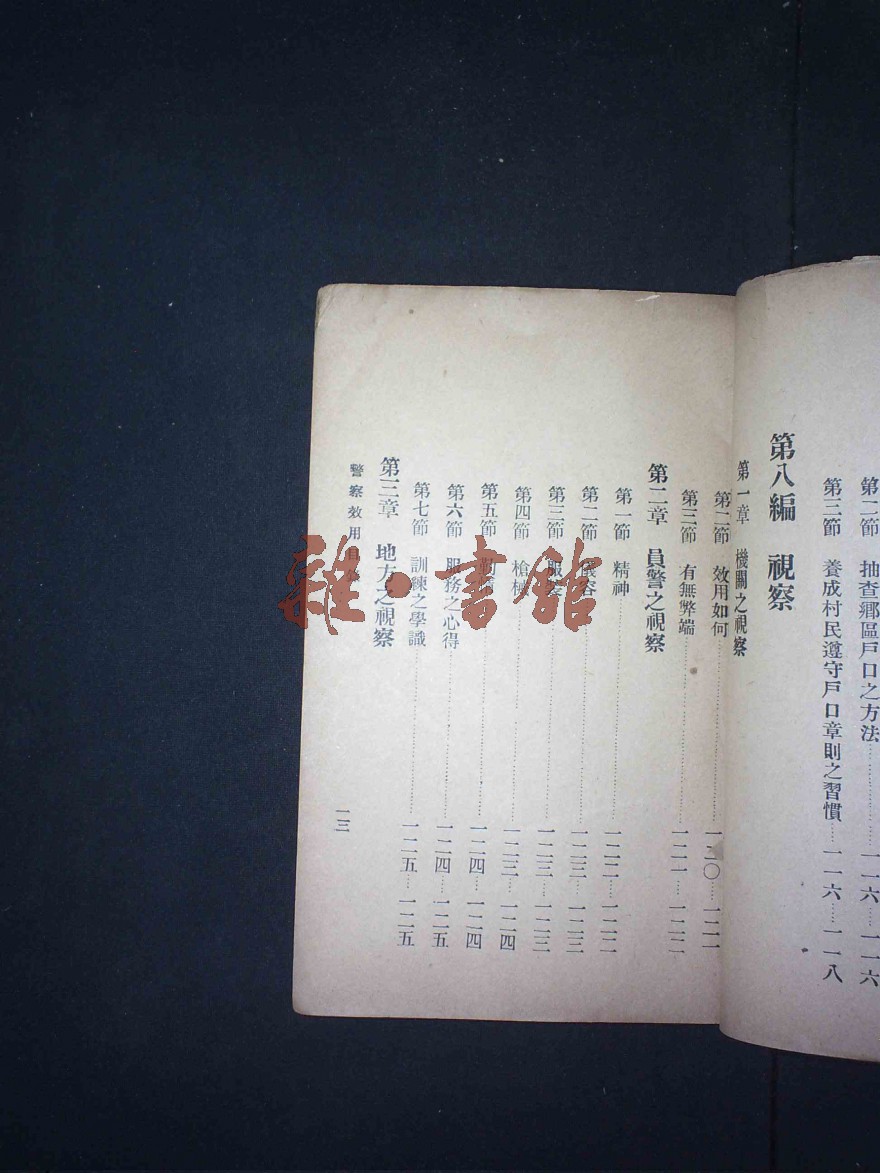 第二節　抽查鄉區戶口之方法……一一六……一一六
第三節　養成村民遵守戶口章則之習慣……一一六……一一八
第八編　視察
第一章　機關之視察
第二節　效用如何……一二〇……一二一
第三節　有無弊端……一二一……一二二
第二章　員警之視察
第一節　精神……一二二……一二二
第二節　儀容……一二三……一二三
第三節　服……一二三……一二三
第四節　槍械……一二三……一二四
第五節　勤……一二四……一二四
第六節　服務之心得……一二四……一二五
第七節　訓練之學識……一二五……一二五
第三章　地方之視察
警察效用目
一三
雜·書館